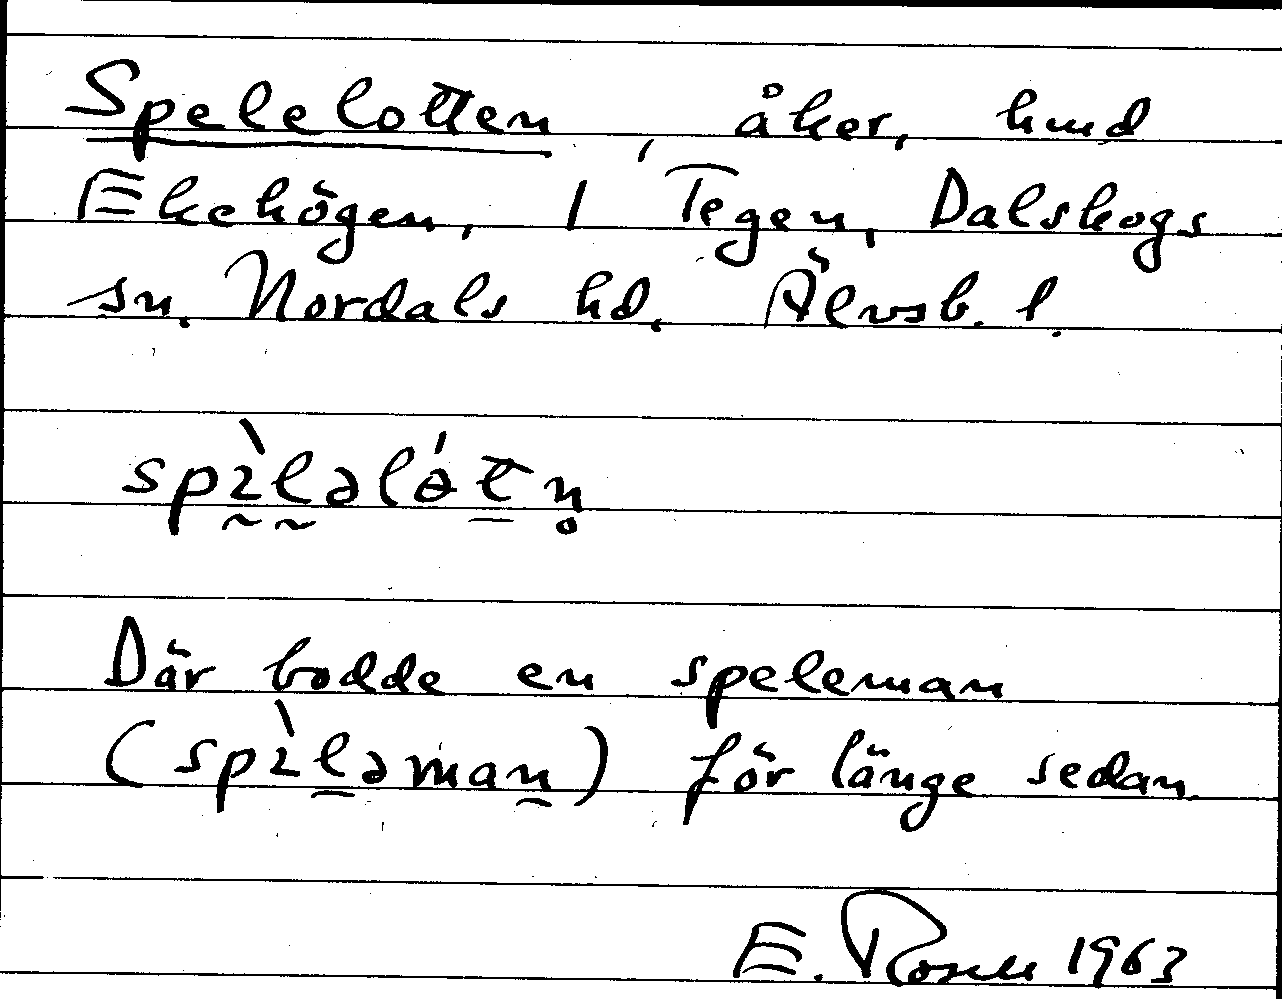 Spelelotten, åker, hmd
Ekehögen, 1 Tegen, Dalskogs
sn. Nordals hd. Älvsb. l.
spìlǝlótn̥
Där bodde en speleman
(spìlǝman) för länge sedan
E. Rosell 1963